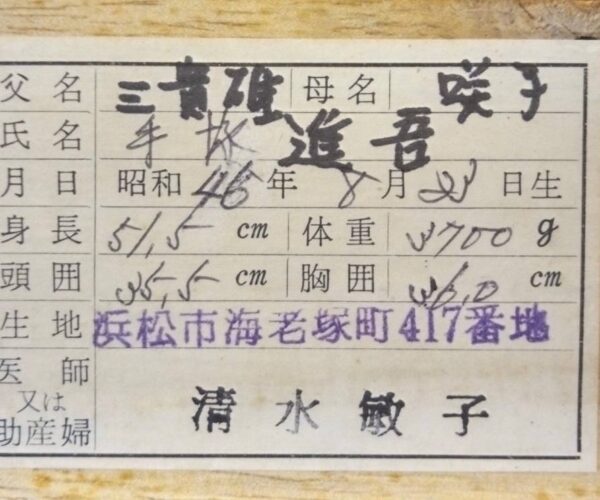 父名 三貴雄 母名 咲子
氏名 手塚 進吾
月日 昭和46年8月23日生
身長 51,5 cm 体重 3700 g
頭囲 35,5 cm 胸囲 36,0 cm
生地 浜松市海老塚町417番地
医師
又は
助産婦 清水敏子